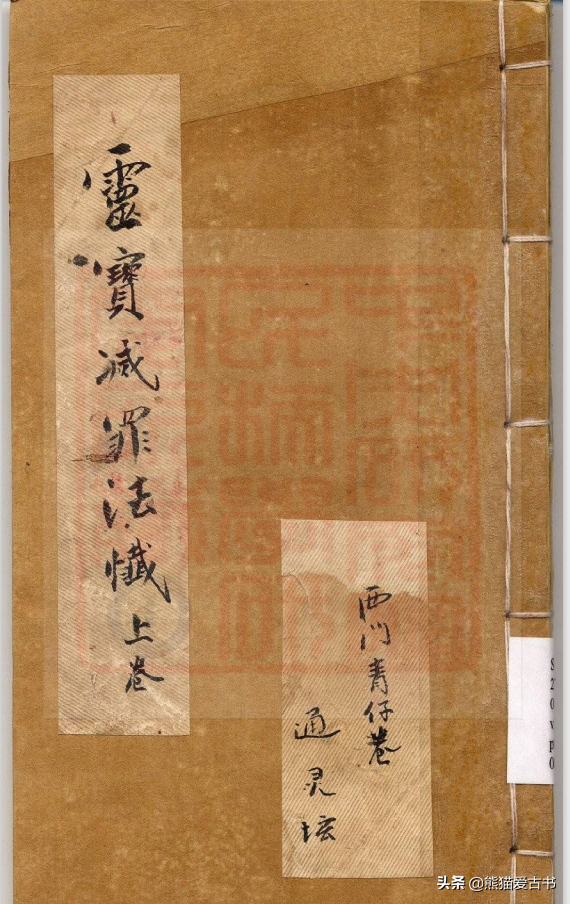 靈寶减罪法懺上卷
西门青仔卷
通灵坛
头条 @熊猫爱古书